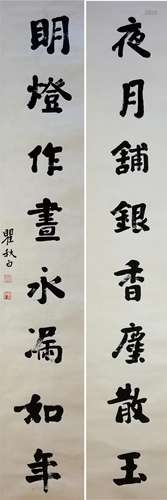 夜月鋪銀香塵散玉
明燈作晝永漏如年
瞿秋白